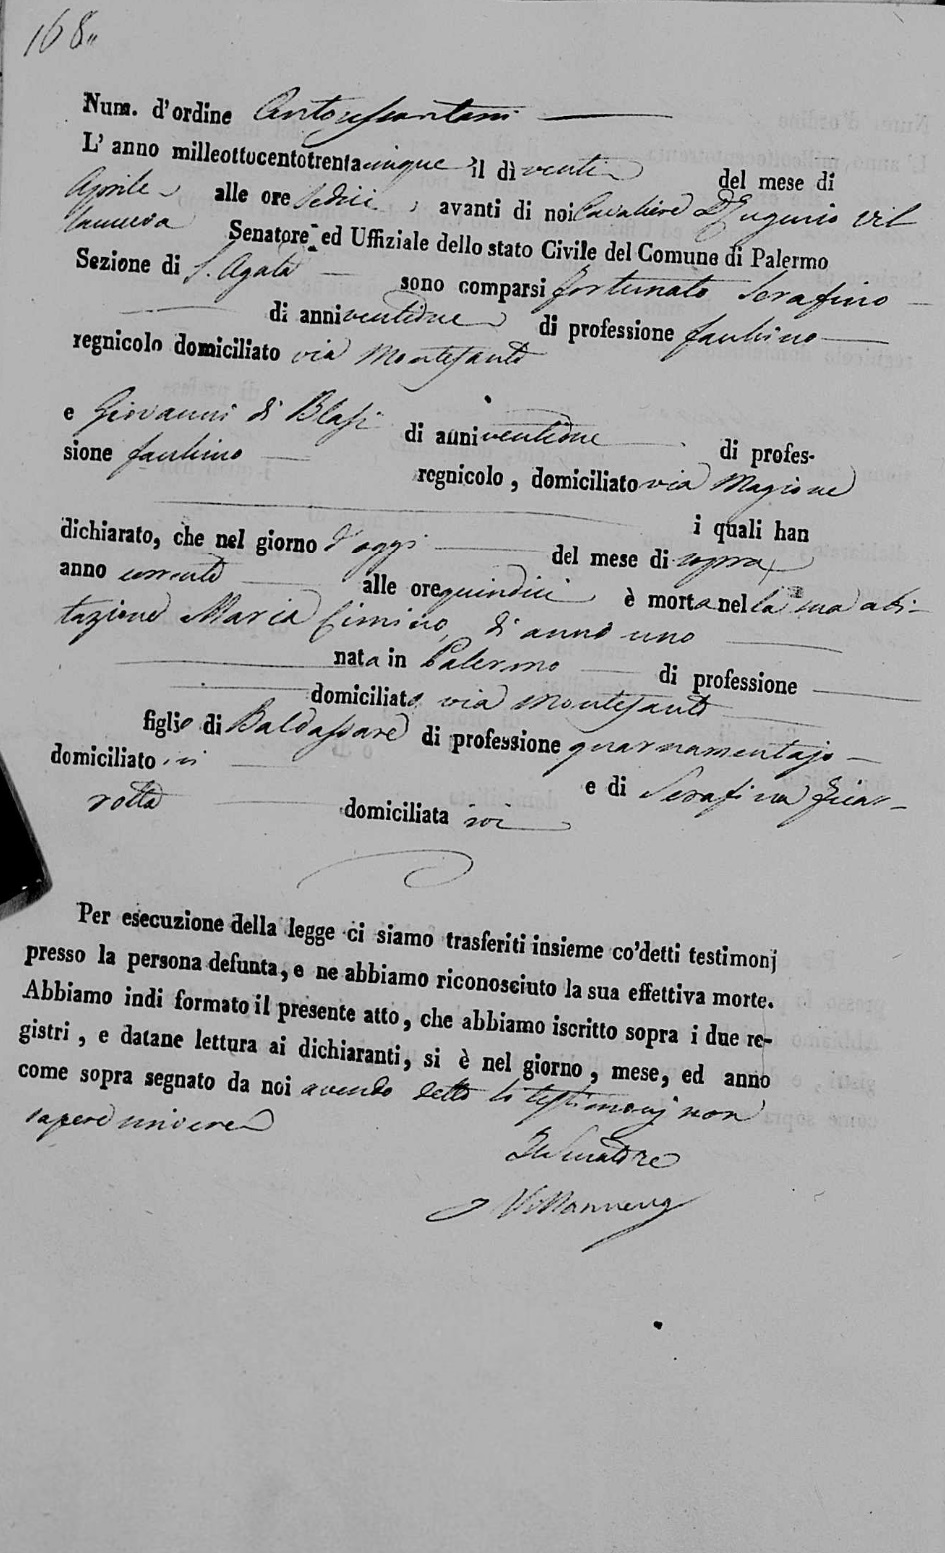 168
Num. d'ordine Centosessantotto
L'anno milleottocentotrentacinque il dì venti del mese di
Aprile alle ore sedici, avanti di noi Cavaliere D. Eugenio Vil
lanueva Senatore ed Uffiziale dello stato Civile del Comune di Palermo
Sezione di S. Agata sono comparsi Fortunato Serafino
di anni ventidue di professione facchino
regnicolo domiciliato via Montesanto
e Giovanni di Blasi di anni ventidue di profes-
sione facchino regnicolo, domiciliato via Magione
i quali han
dichiarato, che nel giorno d'oggi del mese di sopra
anno corrente alle ore quindici è morta nella sua abi-
tazione Maria Cimino, di anno uno
nata in Palermo di professione
domiciliata via Montesanto
figlia di Baldassare di professione guarnamentajo
domiciliato ivi e di Serafina Ficar-
rotta domiciliata ivi
Per esecuzione della legge ci siamo trasferiti insieme co'detti testimonj
presso la persona defunta, e ne abbiamo riconosciuto la sua effettiva morte.
Abbiamo indi formato il presente atto, che abbiamo iscritto sopra i due re-
gistri, e datane lettura ai dichiaranti, si è nel giorno, mese, ed anno
come sopra segnato da noi avendo detto li testimonj non
sapere scrivere
Il Senatore
Villanueva